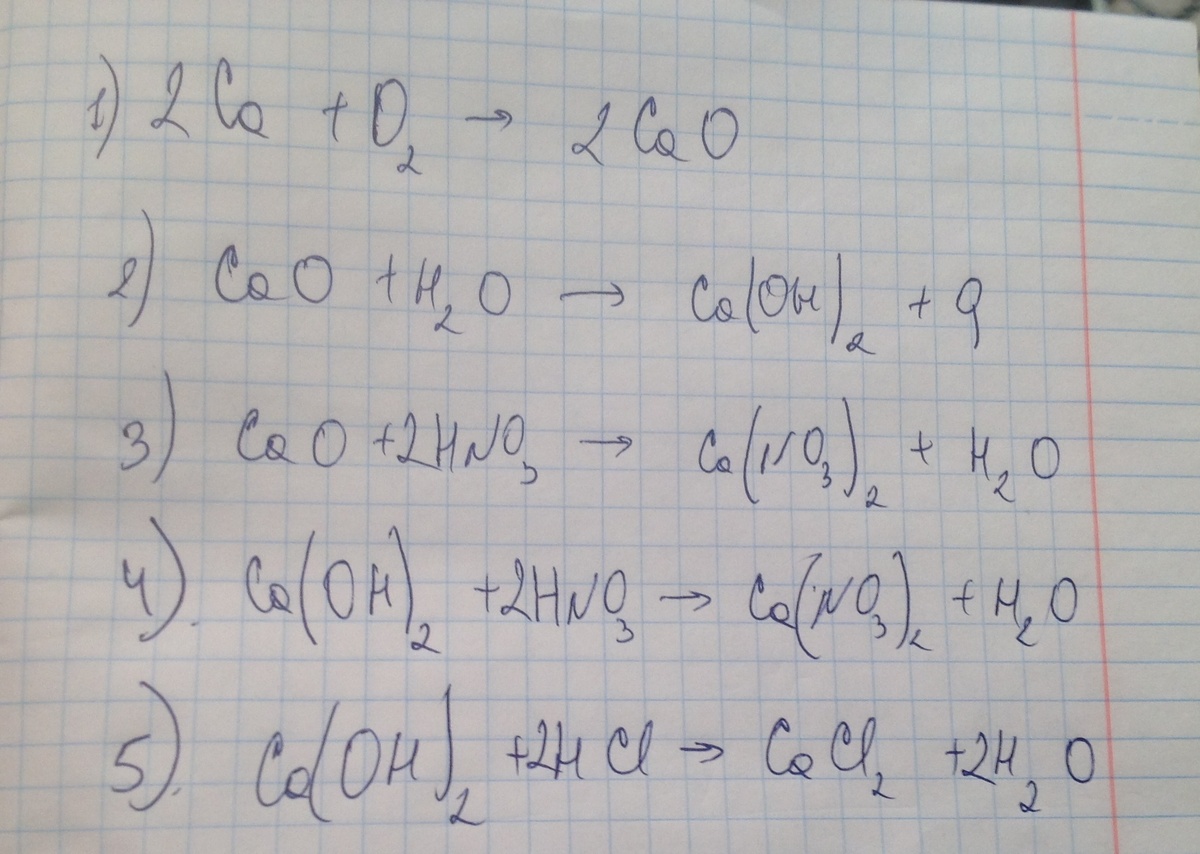 1) 2Ca + O₂ → 2CaO
2) CaO + H₂O → Ca(OH)₂ + q
3) CaO + 2HNO₃ → Ca(NO₃)₂ + H₂O
4). Ca(OH)₂ + 2HNO₃ → Ca(NO₃)₂ + H₂O
5). Ca(OH)₂ + 2HCl → CaCl₂ + 2H₂O